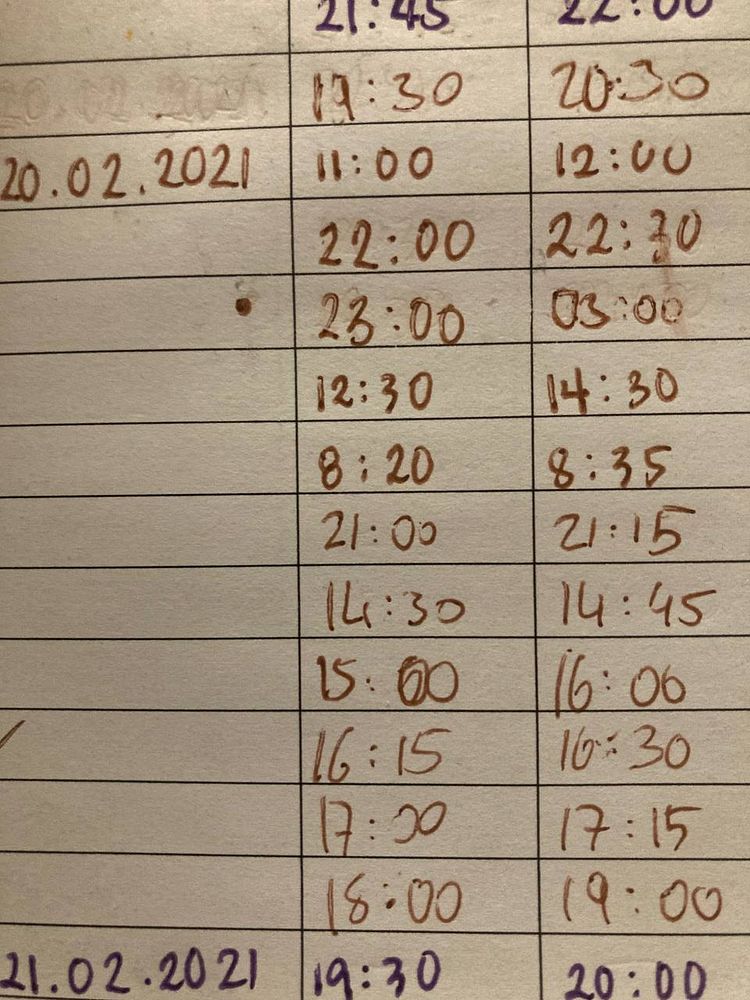 21:45 22:00
20.02.2021 19:30 20:30
20.02.2021 11:00 12:00
22:00 22:30
23:00 03:00
12:30 14:30
8:20 8:35
21:00 21:15
14:30 14:45
15:00 16:00
16:15 16:30
17:00 17:15
18:00 19:00
21.02.2021 19:30 20:00